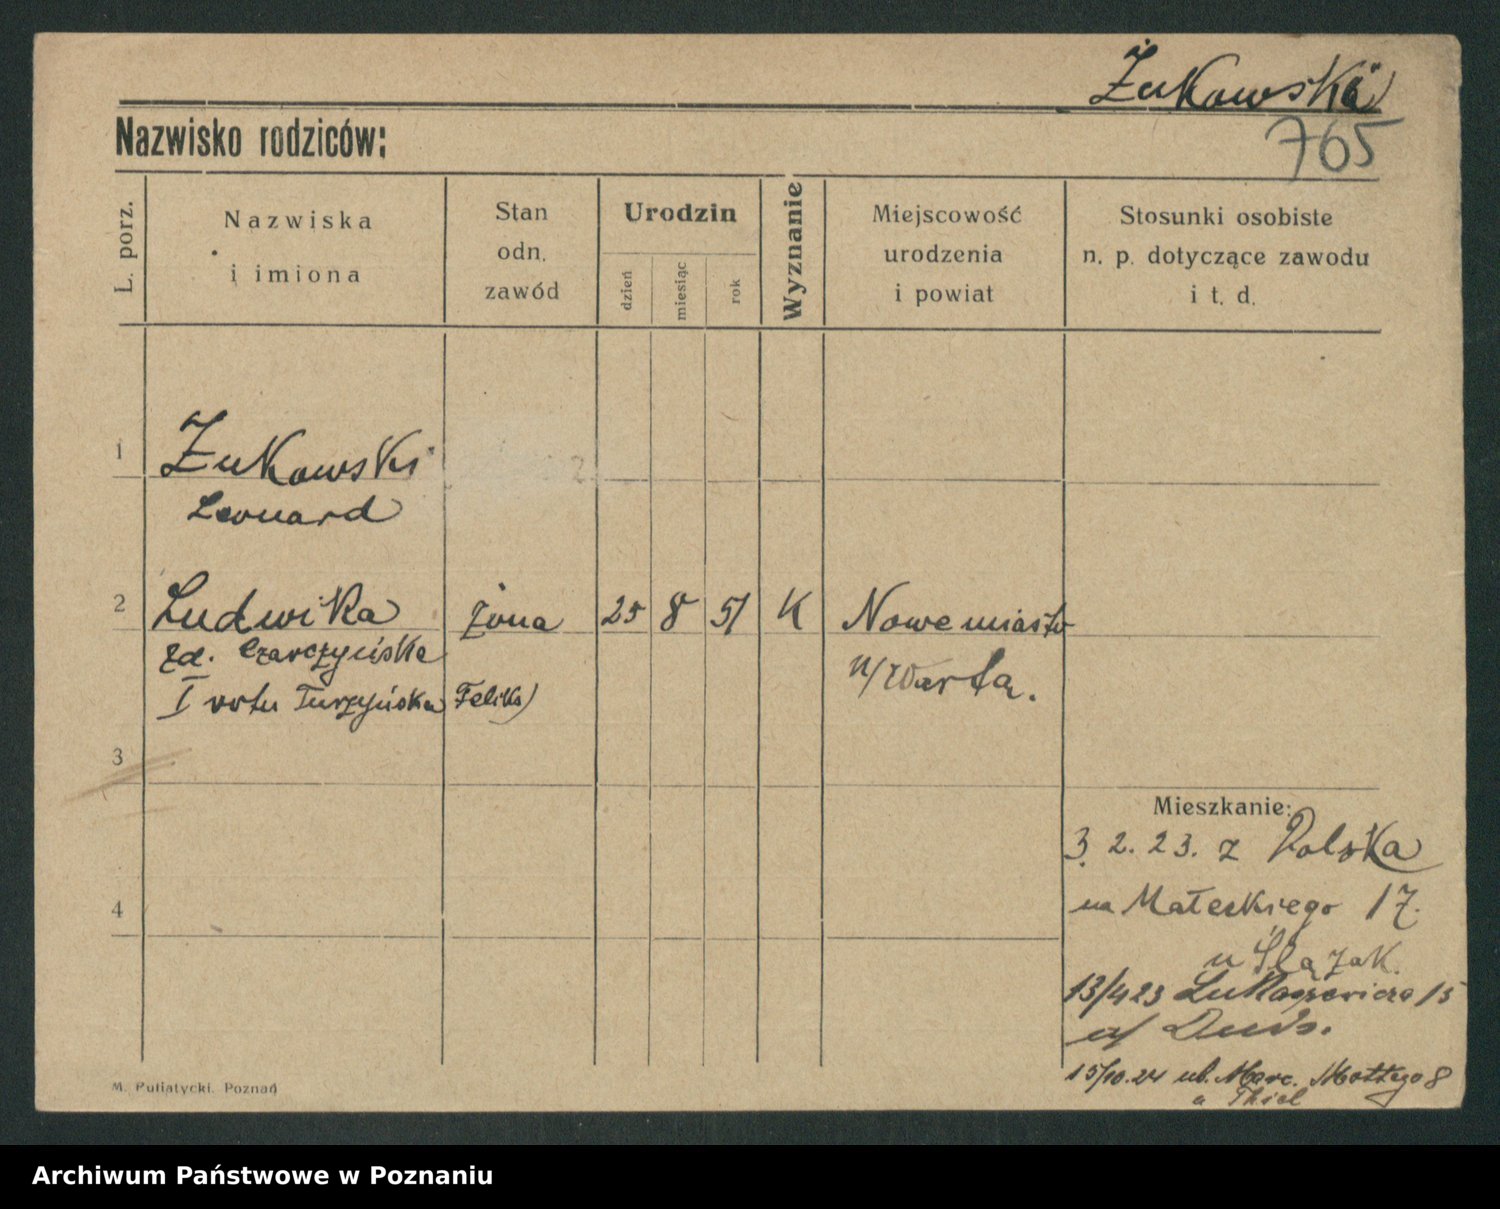 Żukowska
765
Nazwisko rodziców:
L. porz.
Nazwiska
i imiona
Stan
odn.
zawód
Urodzin
dzień
miesiąc
rok
Wyznanie
Miejscowość
urodzenia
i powiat
Stosunki osobiste
n. p. dotyczące zawodu
i t. d.
1
Żukowski
Leonard
2
Ludwika żona 25 8 51 K Nowemiasto
zd. Czarczyńska n/Wartą.
I voto Turzyńska Feliks)
3
Mieszkanie:
3. 2. 23. z Polska
na Małeckiego 17.
4
u Ślązak.
13/4 23 Łukaszewicza 15
15/10.24 ul. Marc. Mottego 8
a Thiel
M. Putiatycki. Poznań
Archiwum Państwowe w Poznaniu